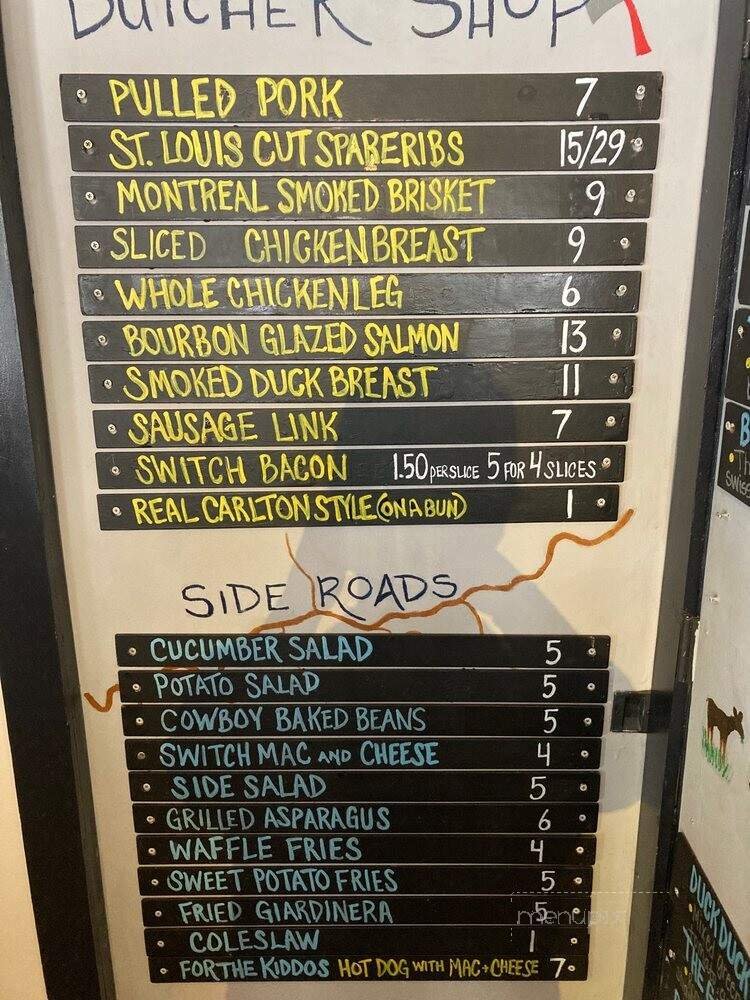 BUTCHER SHOP
PULLED PORK 7
ST. LOUIS CUT SPARERIBS 15/29
MONTREAL SMOKED BRISKET 9
SLICED CHICKEN BREAST 9
WHOLE CHICKEN LEG 6
BOURBON GLAZED SALMON 13
SMOKED DUCK BREAST 11
SAUSAGE LINK 7
SWITCH BACON 1.50 PER SLICE 5 FOR 4 SLICES
REAL CARLTON STYLE (ON A BUN) 1
SIDE ROADS
CUCUMBER SALAD 5
POTATO SALAD 5
COWBOY BAKED BEANS 5
SWITCH MAC AND CHEESE 4
SIDE SALAD 5
GRILLED ASPARAGUS 6
WAFFLE FRIES 4
SWEET POTATO FRIES 5
FRIED GIARDINERA 5
menupix
COLESLAW 1
FOR THE KIDDOS HOT DOG WITH MAC + CHEESE 7
DUCK DUCK
THE